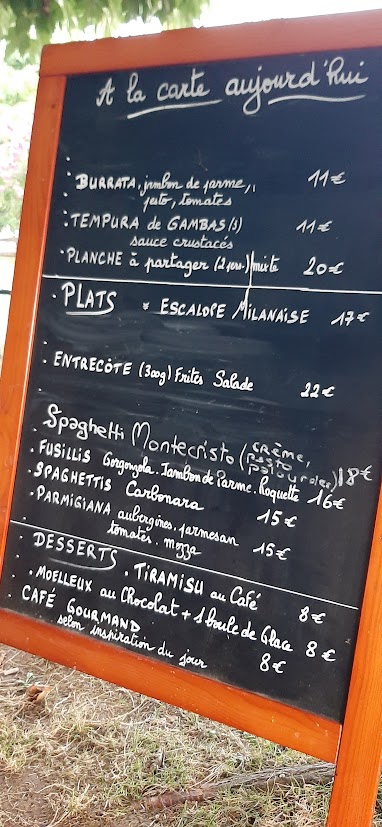 A la carte aujourd'hui
BURRATA, jambon de parme, 11€
pesto, tomates
TEMPURA de GAMBAS (5) 11€
sauce crustacés
PLANCHE à partager (2 pers.) mixte 20€
PLATS * ESCALOPE MILANAISE 17€
ENTRECÔTE (300g) Frites Salade 22€
Spaghetti Montecristo (CRÈME, Pesto, palourdes) 18€
FUSILLIS Gorgonzola. Jambon de Parme. Roquette 16€
SPAGHETTIS Carbonara 15€
PARMIGIANA aubergines, parmesan 15€
tomates. mozza
DESSERTS. TIRAMISU au Café 8€
MOELLEUX au Chocolat + 1 boule de Glace 8€
CAFÉ GOURMAND 8€
selon inspiration du jour